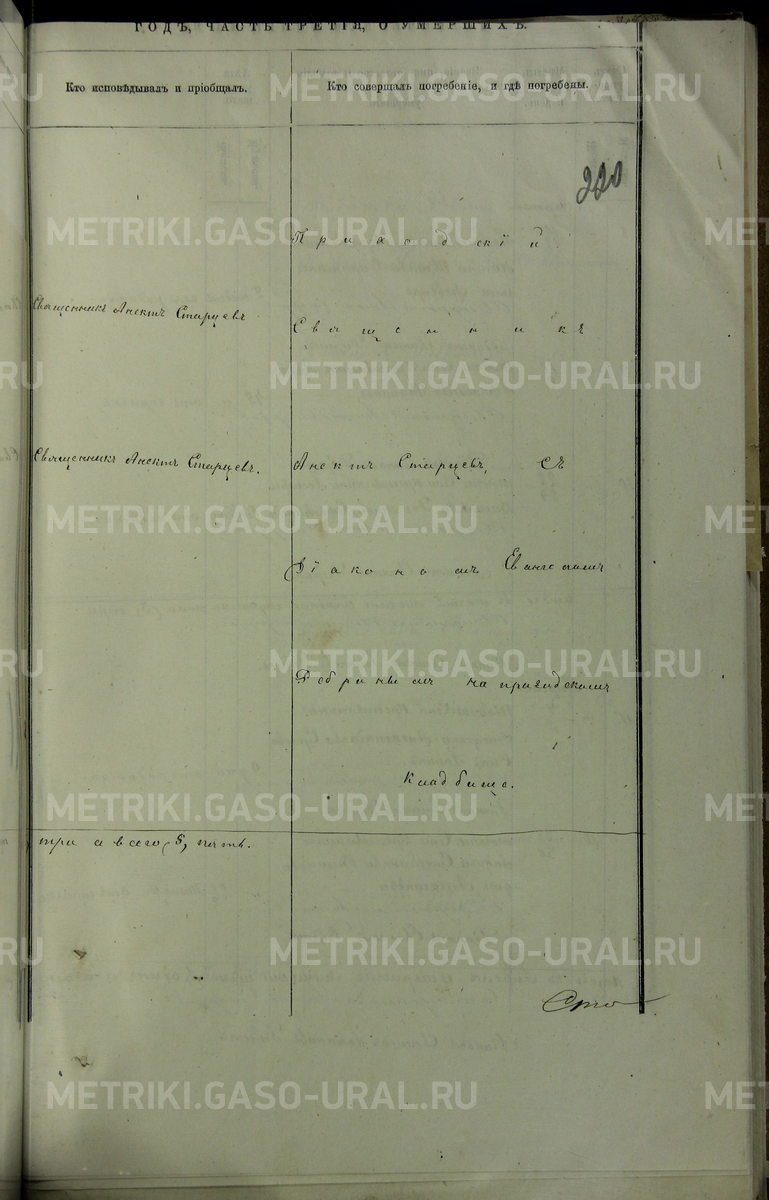 ГОДЪ, ЧАСТЬ ТРЕТІЯ, О УМЕРШИХЪ.
Кто исповѣдывалъ и пріобщалъ.
Кто совершалъ погребеніе, и гдѣ погребены.
220
Приходскій
Священникъ Анектъ Старцевъ
Священникъ
Священникъ Анектъ Старцевъ.
Анектъ Старцевъ, съ
Діакономъ
Добрынымъ на приходскомъ
Кладбище.
три а всего (5, пять.
Сто
METRIKI.GASO-URAL.RU